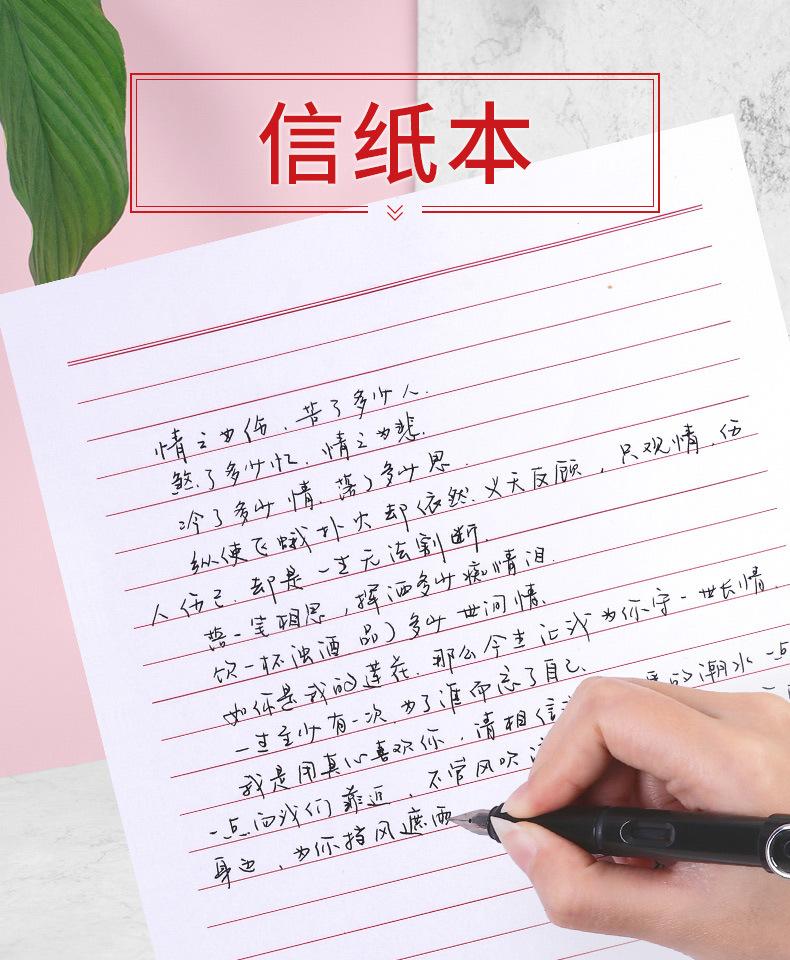 信纸本
情之为伤，苦了多少人.
煞了多少忆，情之为悲.
冷了多少情，落了多少思.
纵使飞蛾扑火却依然义无反顾，只观情，伤
人伤己，却是一生无法割断.
落一笔相思，挥洒多少痴情泪.
饮一杯浊酒 品了多少世间情.
如你是我的莲花，那么今生让我为你守一世长情.
一生至少有一次，为了谁而忘了自己.
我是用真心喜欢你，请相信 的潮水一点
一点向我们靠近，不管风吹
身边，为你挡风遮雨